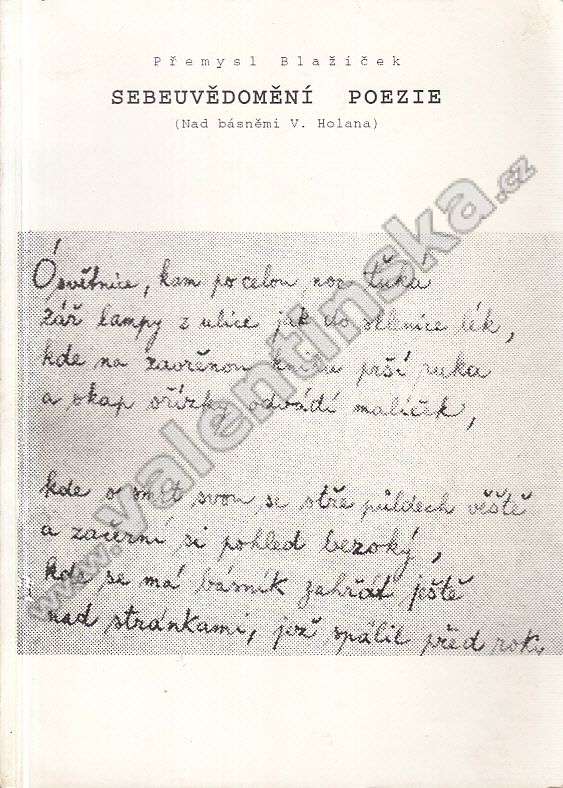 Přemysl Blažíček
SEBEUVĚDOMĚNÍ POEZIE
(Nad básněmi V. Holana)
www.valentinska.cz
Ó světnice, kam po celou noc ťuká
zář lampy z ulice jak do sklenice lék,
kde na zavřenou knihu prší ruka
a okap ořízky odvádí malíček,
kde o smrt svou se otře půldech věště
a zacérní si pohled bezoký,
kde se má básník zahřát ještě
nad stránkami, jež spálil před roky